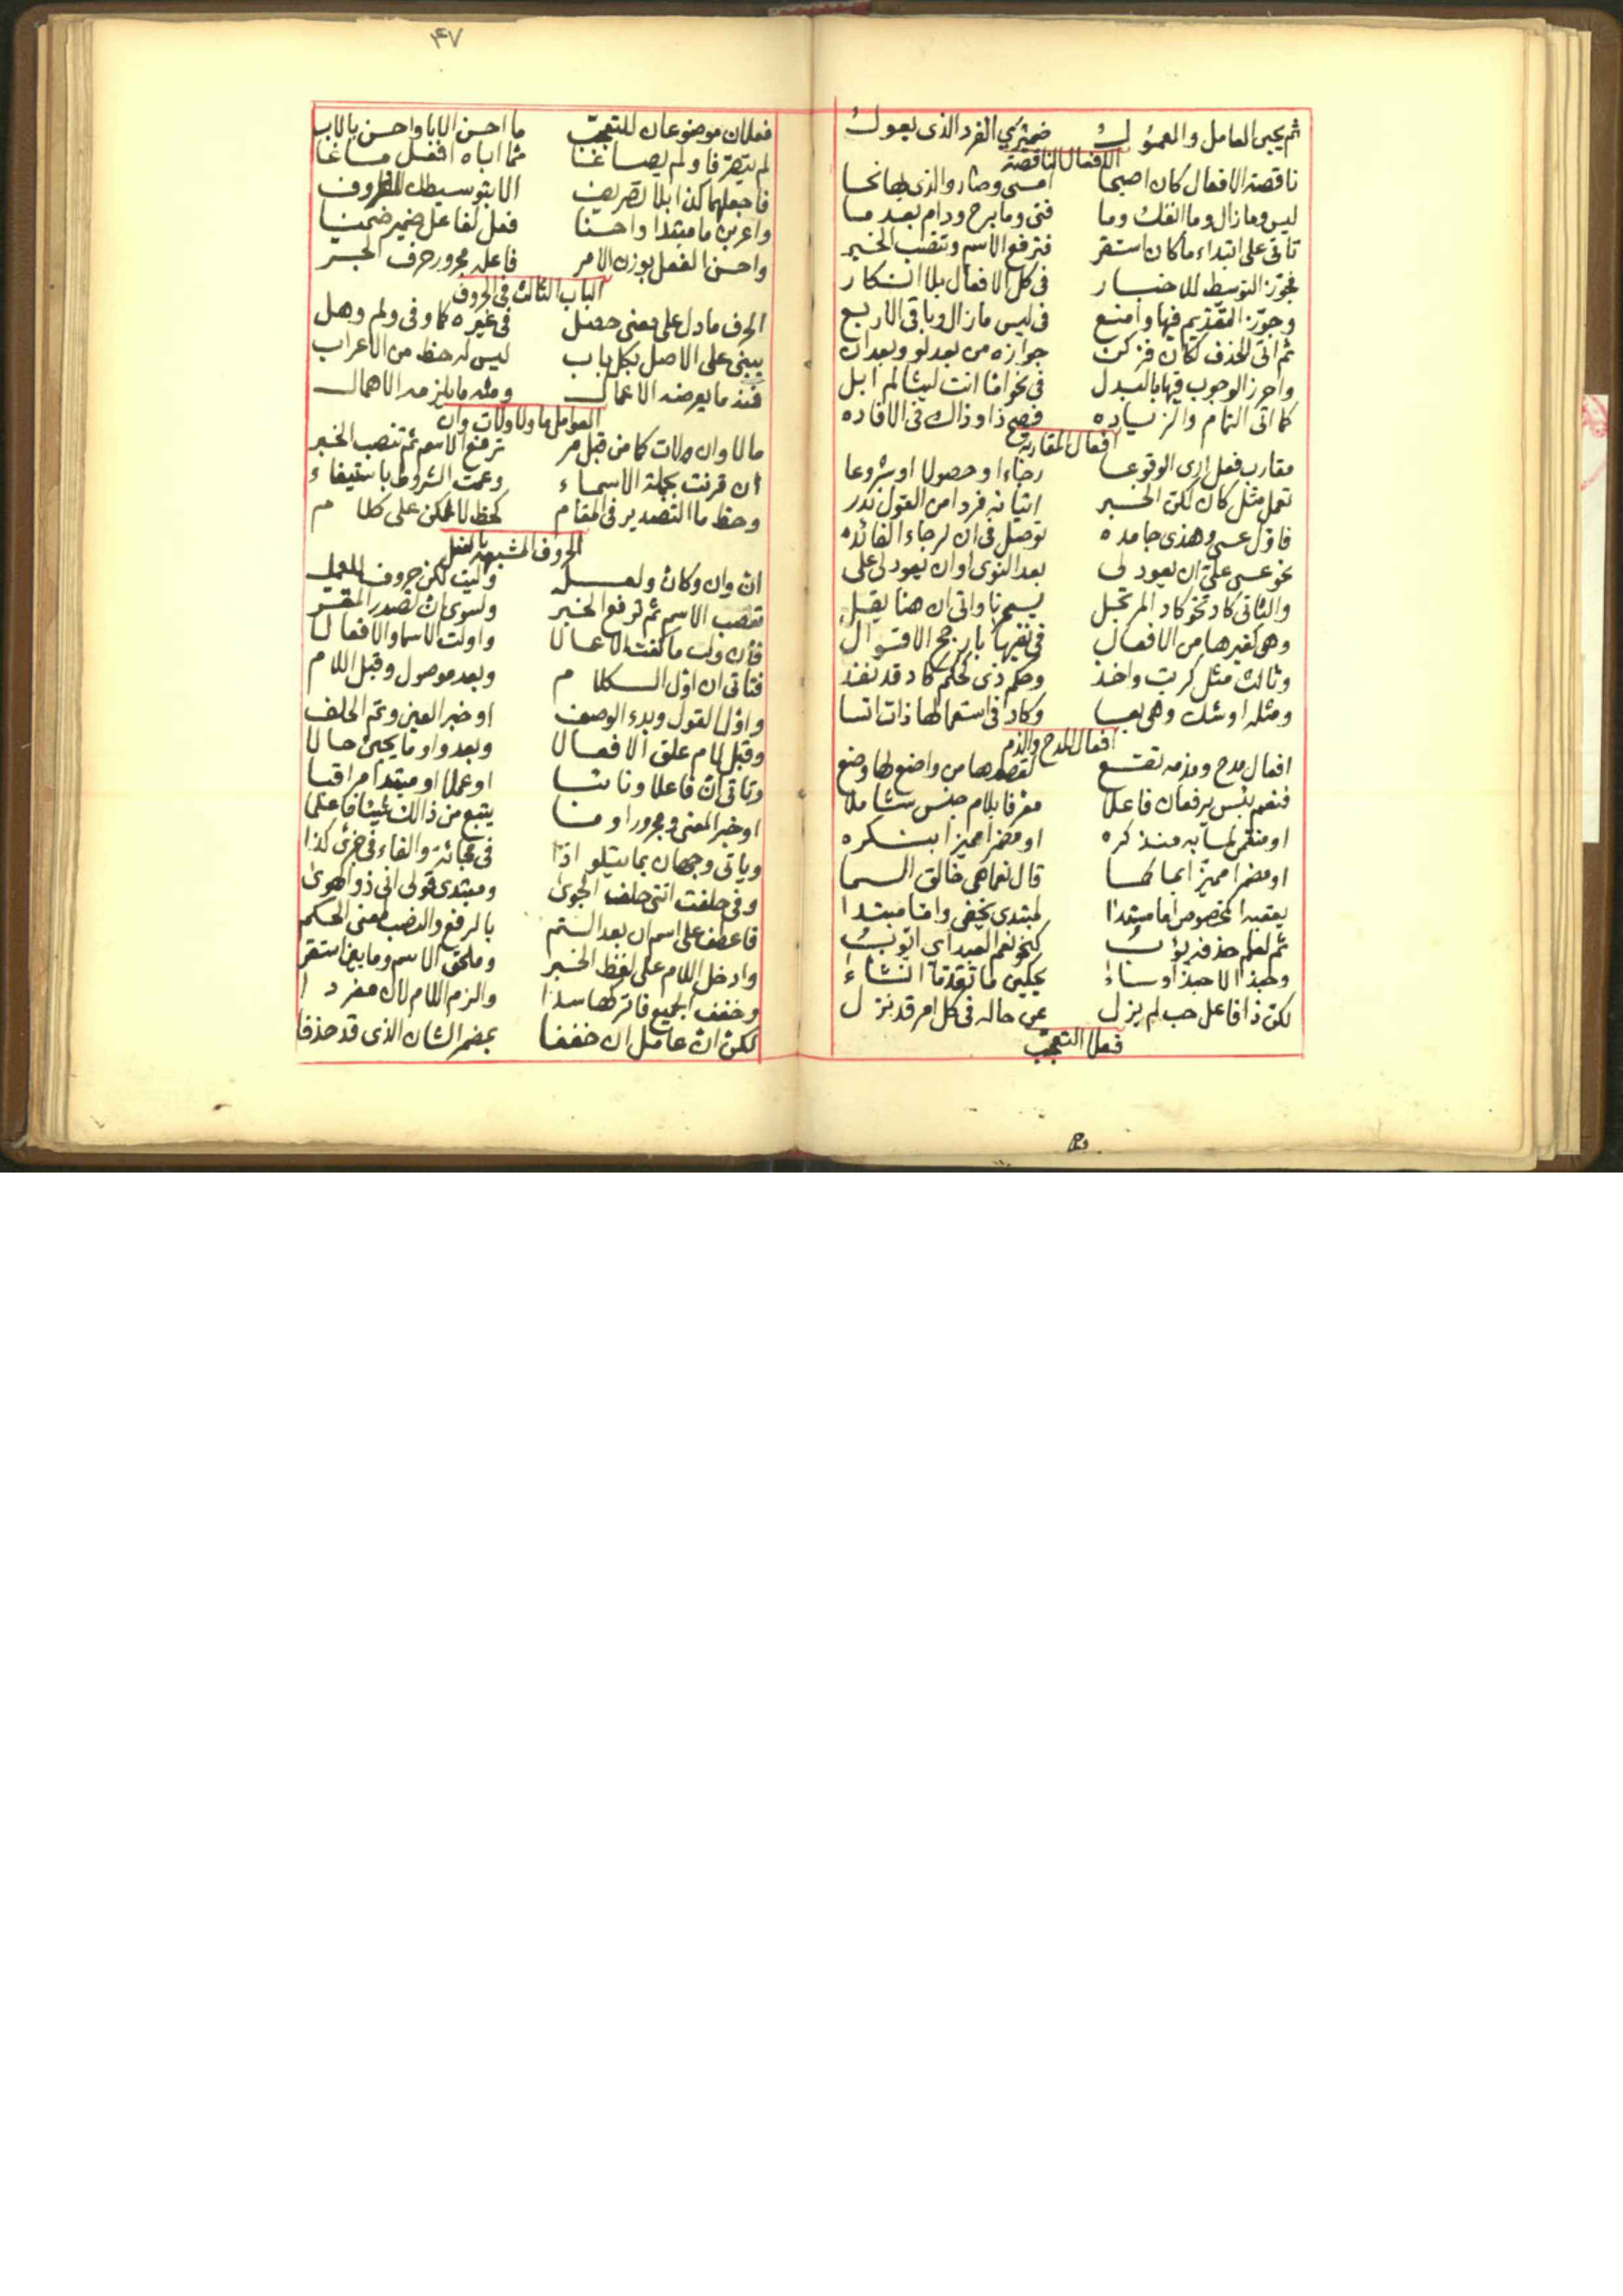 ثم يجبى العامل والمعمول ضميرى الفرد الذى يعول
الافعال الناقصة
ناقصة الافعال كان اصبحا امسى وصار والذى بها نحا
ليس وما زال وما انفك وما فتى وما برح ودام بعد ما
تاتى على ابتداء ما كان استقر فترفع الاسم وتنصب الخبر
فجوّز التوسيط للاخبار فى كل الافعال بلا انكار
وجوّز التقديم فيها وامنع فى ليس ما زال وباقى الاربع
ثم اتى الحذف لكان فزكن جوازه من بعد لو وبعد ان
واحرز الوجوب فيها بالبدل فى نحو امّا انت ليثا لم ابل
كما اتى التمام والزياده فصح ذا وذاك فى الافاده
افعال المقاربة
مقارب فعل لدى الوقوعا رجاءا وحصولا او شروعا
تعمل مثل كان لكن الخبر اتيانه فردا من القول ندر
فاوّل عسى وهذى جامده توصل فى ان لرجاء الفائده
نحو عسى علىّ ان يعود لى بعد النوى او ان يعود لى على
والثانى كاد نحو كاد المرتجل يسيحنا واتى ان هنا يقل
وهى كغيرها من الافعال فى نفيها بارجح الاقوال
وثالث مثل كربت واخذ وحكم ذى كحكم كاد قد نفذ
ومثله اوشك وهى بعسا وكاد فى استعمالها ذات اتسا
افعال المدح والذم
افعال مدح ومذمه تقع لقصدها من واضع لها وضع
فنعم بئس يرفعان فاعلا معرفا بلام جنس شاملا
او منتمى لما به منذكره او مضمرا مميزا بنكره
او مضمرا مميزا بما كما قال نعما هى خالق السما
يعقبه المخصوص اما مبتدا لمبتدى يخفى واما مبتدا
ثم لعلم حذفه يؤب كنحو نعم العبد اى ايوب
وحبذا لا حبذا وساء يحكين ما تقدّما انشاء
لكن ذا فاعل حب لم يزل عن حاله فى كل امر قد نزل
فعلا التعجب
۴۷
فعلان موضوعان للتعجب ما احسن الابا واحسن بالاب
لم يتصرفا ولم يصاغا مما اباه افعل مساغا
فاجعلهما كذا بلا تصريف الا بتوسيط الظروف
واعربن ما مبتدا واحسنا فعل لفاعل ضمير ضمنا
واحسن الفعل بوزن الامر فاعله مجرور حرف الجر
الباب الثالث فى الحروف
الحرف ما دل على معنى حصل فى غيره كما وفى ولم وهل
يبنى على الاصل بكل باب ليس له حظ من الاعراب
فمنه ما يعرضه الاعمال ومنه ما يلزمه الاهمال
العوامل ما ولا ولات وان
ما لا وان ولات كما من قبل مر ترفع الاسم ثم تنصب الخبر
ان قرنت بجملة الاسماء وعمت الشروط باستيفاء
وحظ ما التصدير فى المقام كحظ لا لكن على كلام
الحروف المشبهه بالفعل
انّ وان وكان ولعل وليت لكن حروف للعمل
تنصب الاسم ثم ترفع الخبر ولسوى ان تصدر المقر
فان ولت ما كفت الاعمالا واولت الاسما والافعالا
فتاتى ان اوّل الكلام وبعد موصول وقبل اللام
واوّل القول وبدء الوصف او خبر العين وتم الحلف
وقبل لام علق الافعالا وبعد واو ما يجيئ حالا
وتاتى انّ فاعلا ونائبا او عملا او مبتدا مراقبا
او خبر المعنى ومجرورا وما يتبع من ذالك شيئا فاعلما
وياتى وجهان بما يتلو اذا فى فجائة والفاء فى جزى كذا
وفى حلفت اننى حلف الجوى ومبتدى قولى انى ذو الهوى
فاعطف على اسم ان بعد التتم بالرفع والنصب معنى الحكم
وادخل اللام على لفظ الخبر وملحق الاسم وما بين استقر
وخفف الجميع فاتركها سدا والزم اللام لان مفردا
لكن ان عامل ان خففا بمضمر الشان الذى قد حذفا